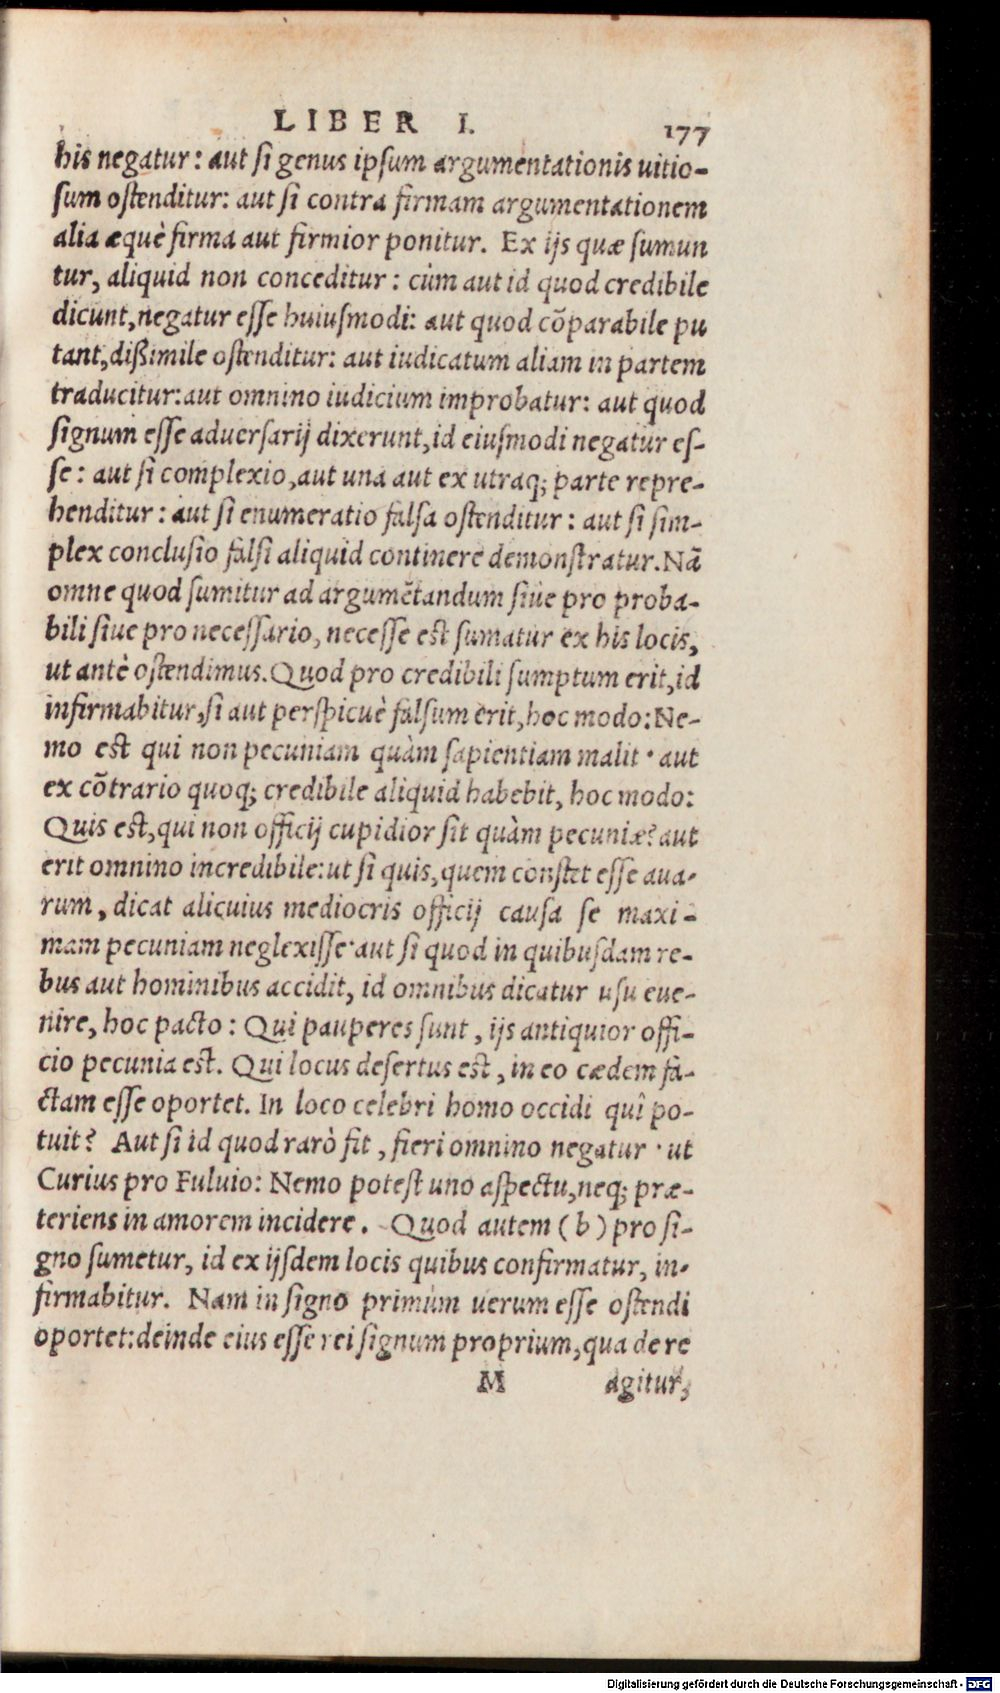 LIBER I. 177
his negatur: aut si genus ipsum argumentationis uitio-
sum ostenditur: aut si contra firmam argumentationem
alia æquè firma aut firmior ponitur. Ex ijs quæ sumun
tur, aliquid non conceditur: cùm aut id quod credibile
dicunt, negatur esse huiusmodi: aut quod cõparabile pu
tant, dißimile ostenditur: aut iudicatum aliam in partem
traducitur: aut omnino iudicium improbatur: aut quod
signum esse aduersarij dixerunt, id eiusmodi negatur es-
se: aut si complexio, aut una aut ex utraq; parte repre-
henditur: aut si enumeratio falsa ostenditur: aut si sim-
plex conclusio falsi aliquid continere demonstratur. Nã
omne quod sumitur ad argumẽtandum siue pro proba-
bili siue pro necessario, necesse est sumatur ex his locis,
ut antè ostendimus. Quod pro credibili sumptum erit, id
infirmabitur, si aut perspicuè falsum erit, hoc modo: Ne-
mo est qui non pecuniam quàm sapientiam malit· aut
ex cõtrario quoq; credibile aliquid habebit, hoc modo:
Quis est, qui non officij cupidior sit quàm pecuniæ? aut
erit omnino incredibile: ut si quis, quem constet esse aua-
rum, dicat alicuius mediocris officij causa se maxi-
mam pecuniam neglexisse· aut si quod in quibusdam re-
bus aut hominibus accidit, id omnibus dicatur usu eue-
nire, hoc pacto: Qui pauperes sunt, ijs antiquior offi-
cio pecunia est. Qui locus desertus est, in eo cædem fa-
ctam esse oportet. In loco celebri homo occidi quî po-
tuit? Aut si id quod rarò fit, fieri omnino negatur· ut
Curius pro Fuluio: Nemo potest uno aspectu, neq; præ-
teriens in amorem incidere. Quod autem (b) pro si-
gno sumetur, id ex ijsdem locis quibus confirmatur, in-
firmabitur. Nam in signo primùm uerum esse ostendi
oportet: deinde eius esse rei signum proprium, qua de re
M agitur,
Digitalisierung gefördert durch die Deutsche Forschungsgemeinschaft - DFG